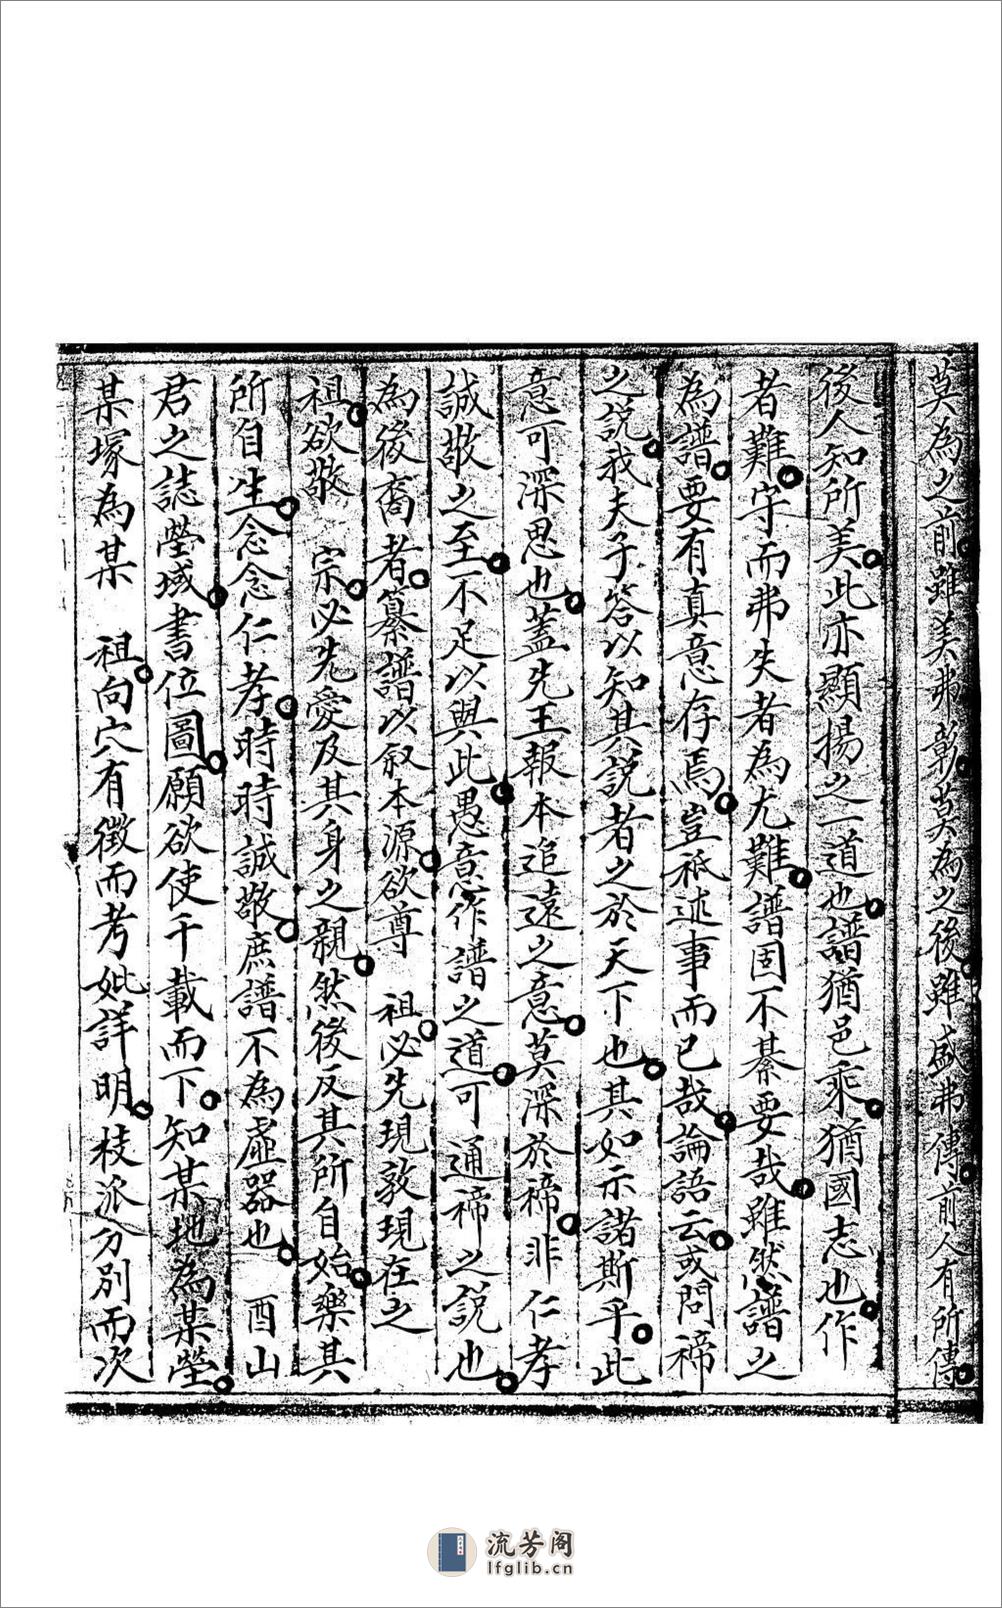 莫為之前雖美弗彰莫為之後雖盛弗傳前人有所傳
後人知所美此亦顯揚之一道也譜猶邑乘猶國志也作
者難守而弗失者為尤難譜固不綦要哉雖然譜之
為譜要有真意存焉豈祇述事而已哉論語云或問禘
之說我夫子答以知其說者之於天下也其如示諸斯乎此
意可深思也蓋先王報本追遠之意莫深於禘非仁孝
誠敬之至不足以與此愚意作譜之道可通禘之說也
為後裔者纂譜以敘本源欲尊 祖必先現敦現在之
祖欲敬 宗必先愛及其身之親然後反其所自始樂其
所自生念念仁孝時時誠敬庶譜不為虛器也 酉山
君之誌塋域書位圖願欲使千載而下知某地為某塋
某塚為某 祖向穴有徵而考妣詳明枝派分別而次
流芳阁
lfglib.cn